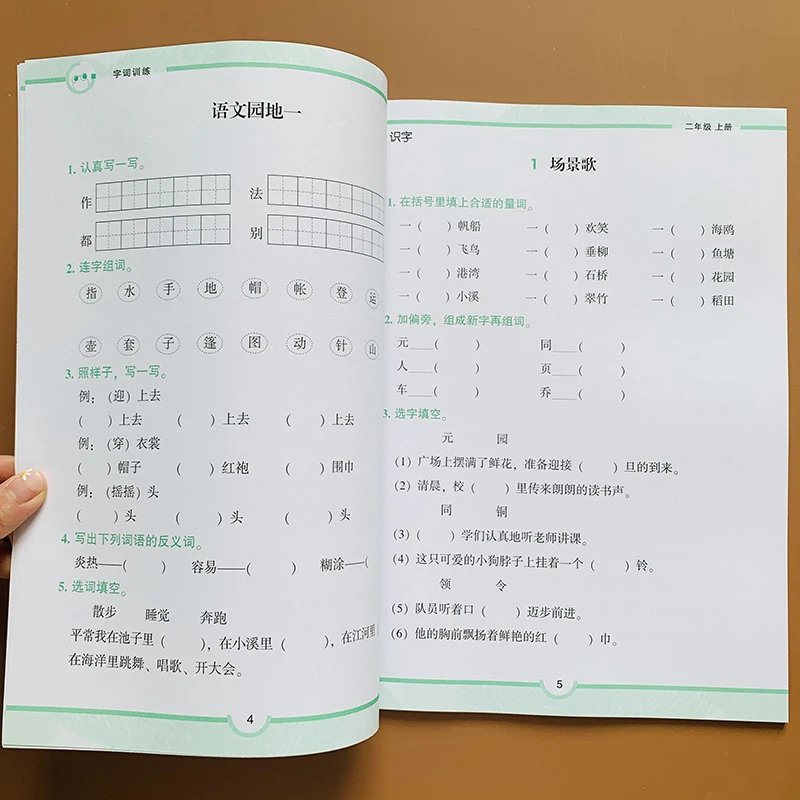 字词训练
语文园地一
1. 认真写一写。
作 法
都 别
2. 连字组词。
指 水 手 地 帽 帐 登 运
壶 套 子 篷 图 动 针 山
3. 照样子，写一写。
例：（迎）上去
（ ）上去 （ ）上去 （ ）上去
例：（穿）衣裳
（ ）帽子 （ ）红袍 （ ）围巾
例：（摇摇）头
（ ）头 （ ）头 （ ）头
4. 写出下列词语的反义词。
炎热——（ ） 容易——（ ） 糊涂——（
5. 选词填空。
散步 睡觉 奔跑
平常我在池子里（ ），在小溪里（ ），在江河里
在海洋里跳舞、唱歌、开大会。
4
识字
二年级 上册
1 场景歌
1. 在括号里填上合适的量词。
一（ ）帆船 一（ ）欢笑 一（ ）海鸥
一（ ）飞鸟 一（ ）垂柳 一（ ）鱼塘
一（ ）港湾 一（ ）石桥 一（ ）花园
一（ ）小溪 一（ ）翠竹 一（ ）稻田
2. 加偏旁，组成新字再组词。
元___（ ） 同___（ ）
人___（ ） 页___（ ）
车___（ ） 乔___（ ）
3. 选字填空。
元 园
（1）广场上摆满了鲜花，准备迎接（ ）旦的到来。
（2）清晨，校（ ）里传来朗朗的读书声。
同 铜
（3）（ ）学们认真地听老师讲课。
（4）这只可爱的小狗脖子上挂着一个（ ）铃。
领 令
（5）队员听着口（ ）迈步前进。
（6）他的胸前飘扬着鲜艳的红（ ）巾。
5